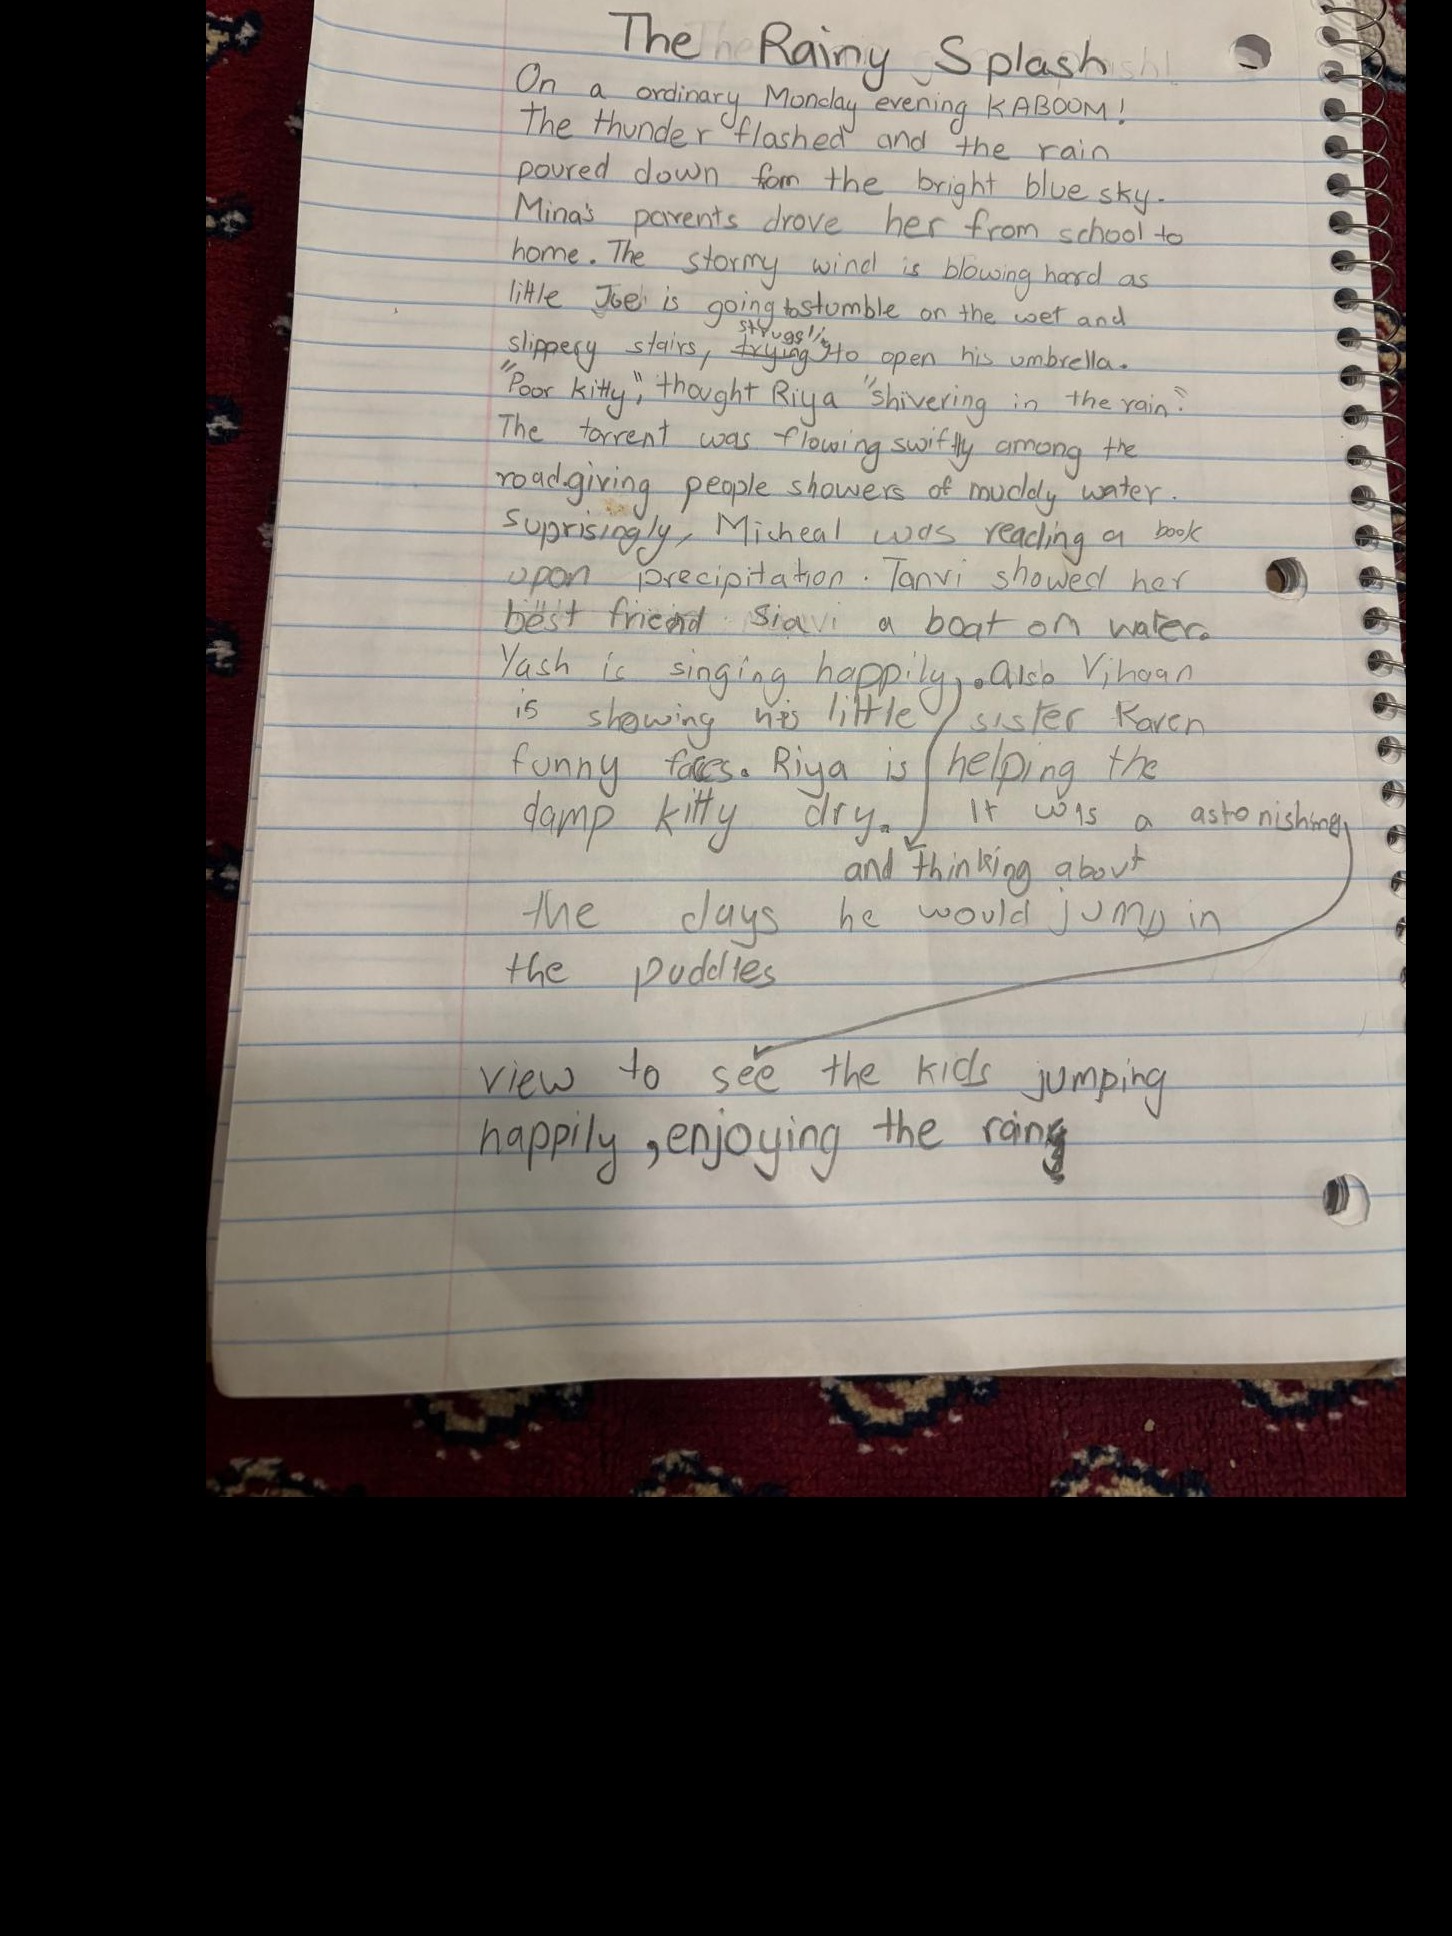 The Rainy Splash
On a ordinary Monday evening KABOOM!
The thunder flashed and the rain
poured down fom the bright blue sky.
Mina's parents drove her from school to
home. The stormy wind is blowing hard as
little Joe is going to stumble on the wet and
struggling
slippery stairs, trying to open his umbrella.
"Poor kitty," thought Riya "shivering in the rain."
The torrent was flowing swiftly among the
road giving people showers of muddy water.
Suprisingly, Micheal was reading a book
upon precipitation. Tanvi showed her
best friend Siavi a boat on water.
Yash is singing happily, . Also Vihaan
is showing his little sister Karen
funny faces. Riya is helping the
damp kitty dry. It was a astonishing
and thinking about
the days he would jump in
the puddles
view to see the kids jumping
happily, enjoying the rain